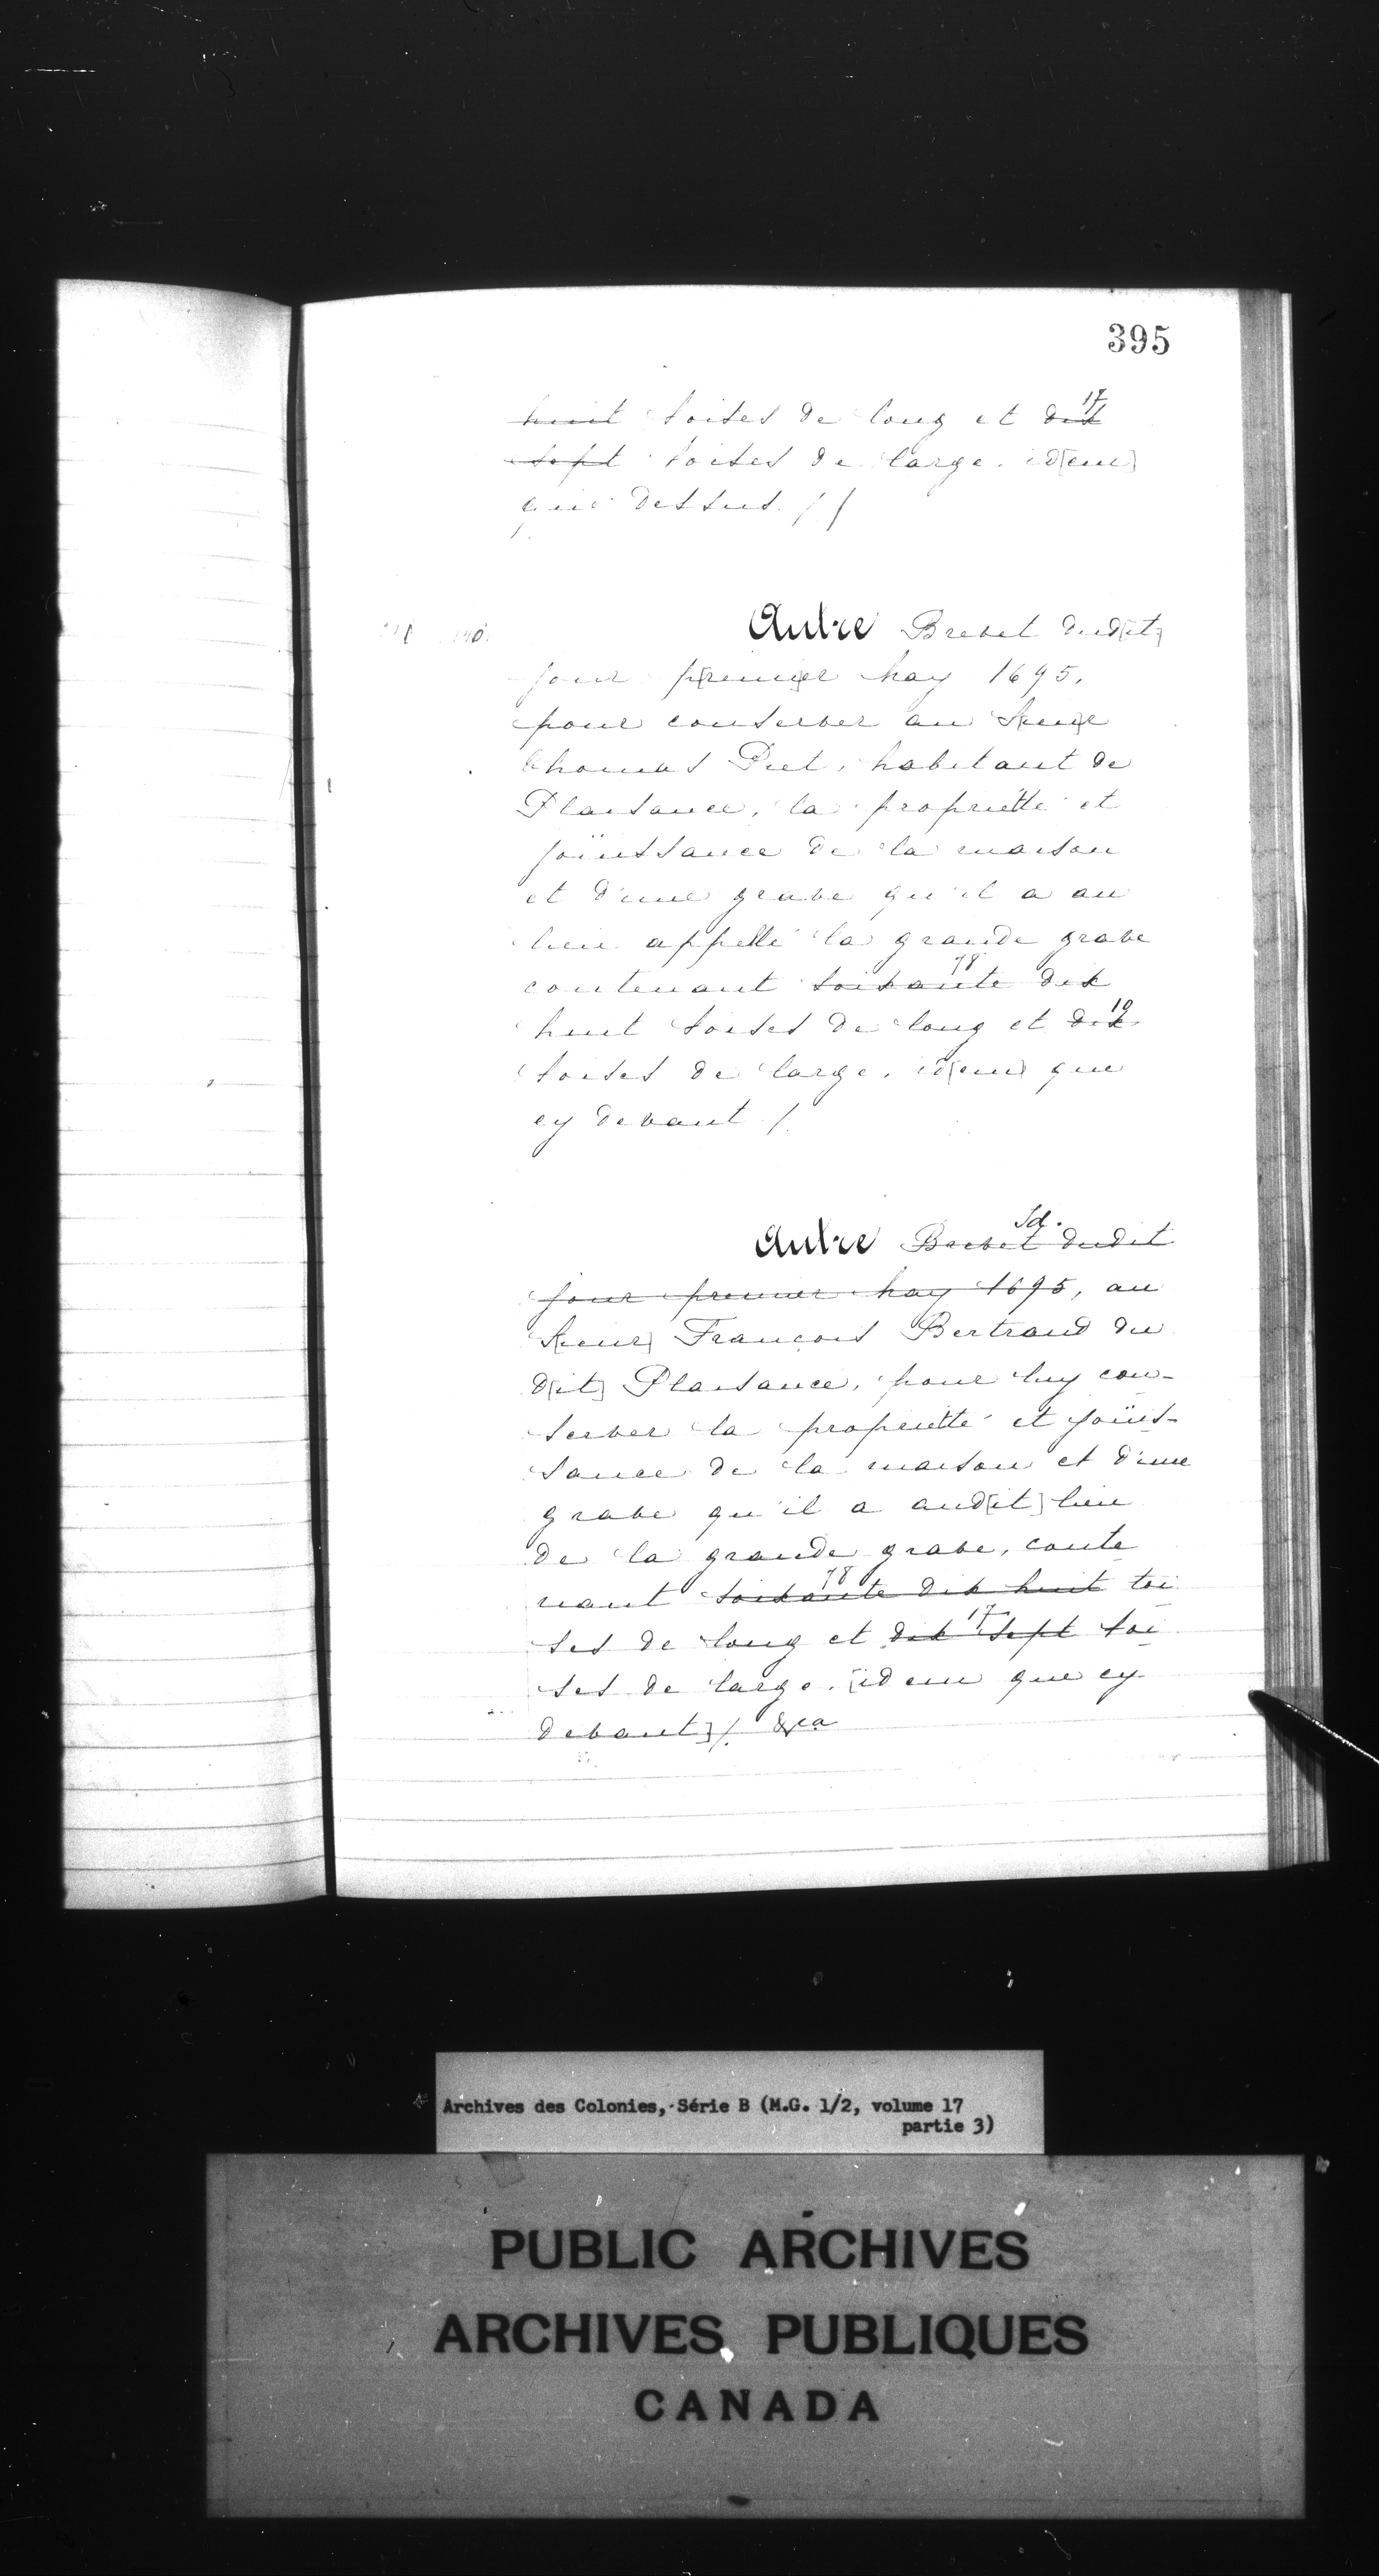 395
17
huit toises de long et dix
sept toises de large. id[em]
que dessus. //
Autre Brevet dud[it]
jour p[remi]er may 1695,
pour conserver au S[ieu]r
Thomas Piet, habitant de
Plaisance, la propriétté et
joüissance de la maison
et d'une grave qu'il a au
lieu appellé la grande grave
78
contenant soixante dix
10
huit toises de long et dix
toises de large. id[em] que
cy devant /.
Id.
Autre Brevet dudit
jour premier may 1695, au
S[ieur] François Bertrand du
d[it] Plaisance, pour luy con-
server la propriétté et joüis-
sance de la maison et d'une
grave qu'il a aud[it] lieu
de la grande grave, conte
78
nant soixante dix huit toi
17
ses de long et dix sept toi
ses de large. [idem que cy
devant] /. &ca
Archives des Colonies, Série B (M.G. 1/2, volume 17
partie 3)
PUBLIC ARCHIVES
ARCHIVES PUBLIQUES
CANADA